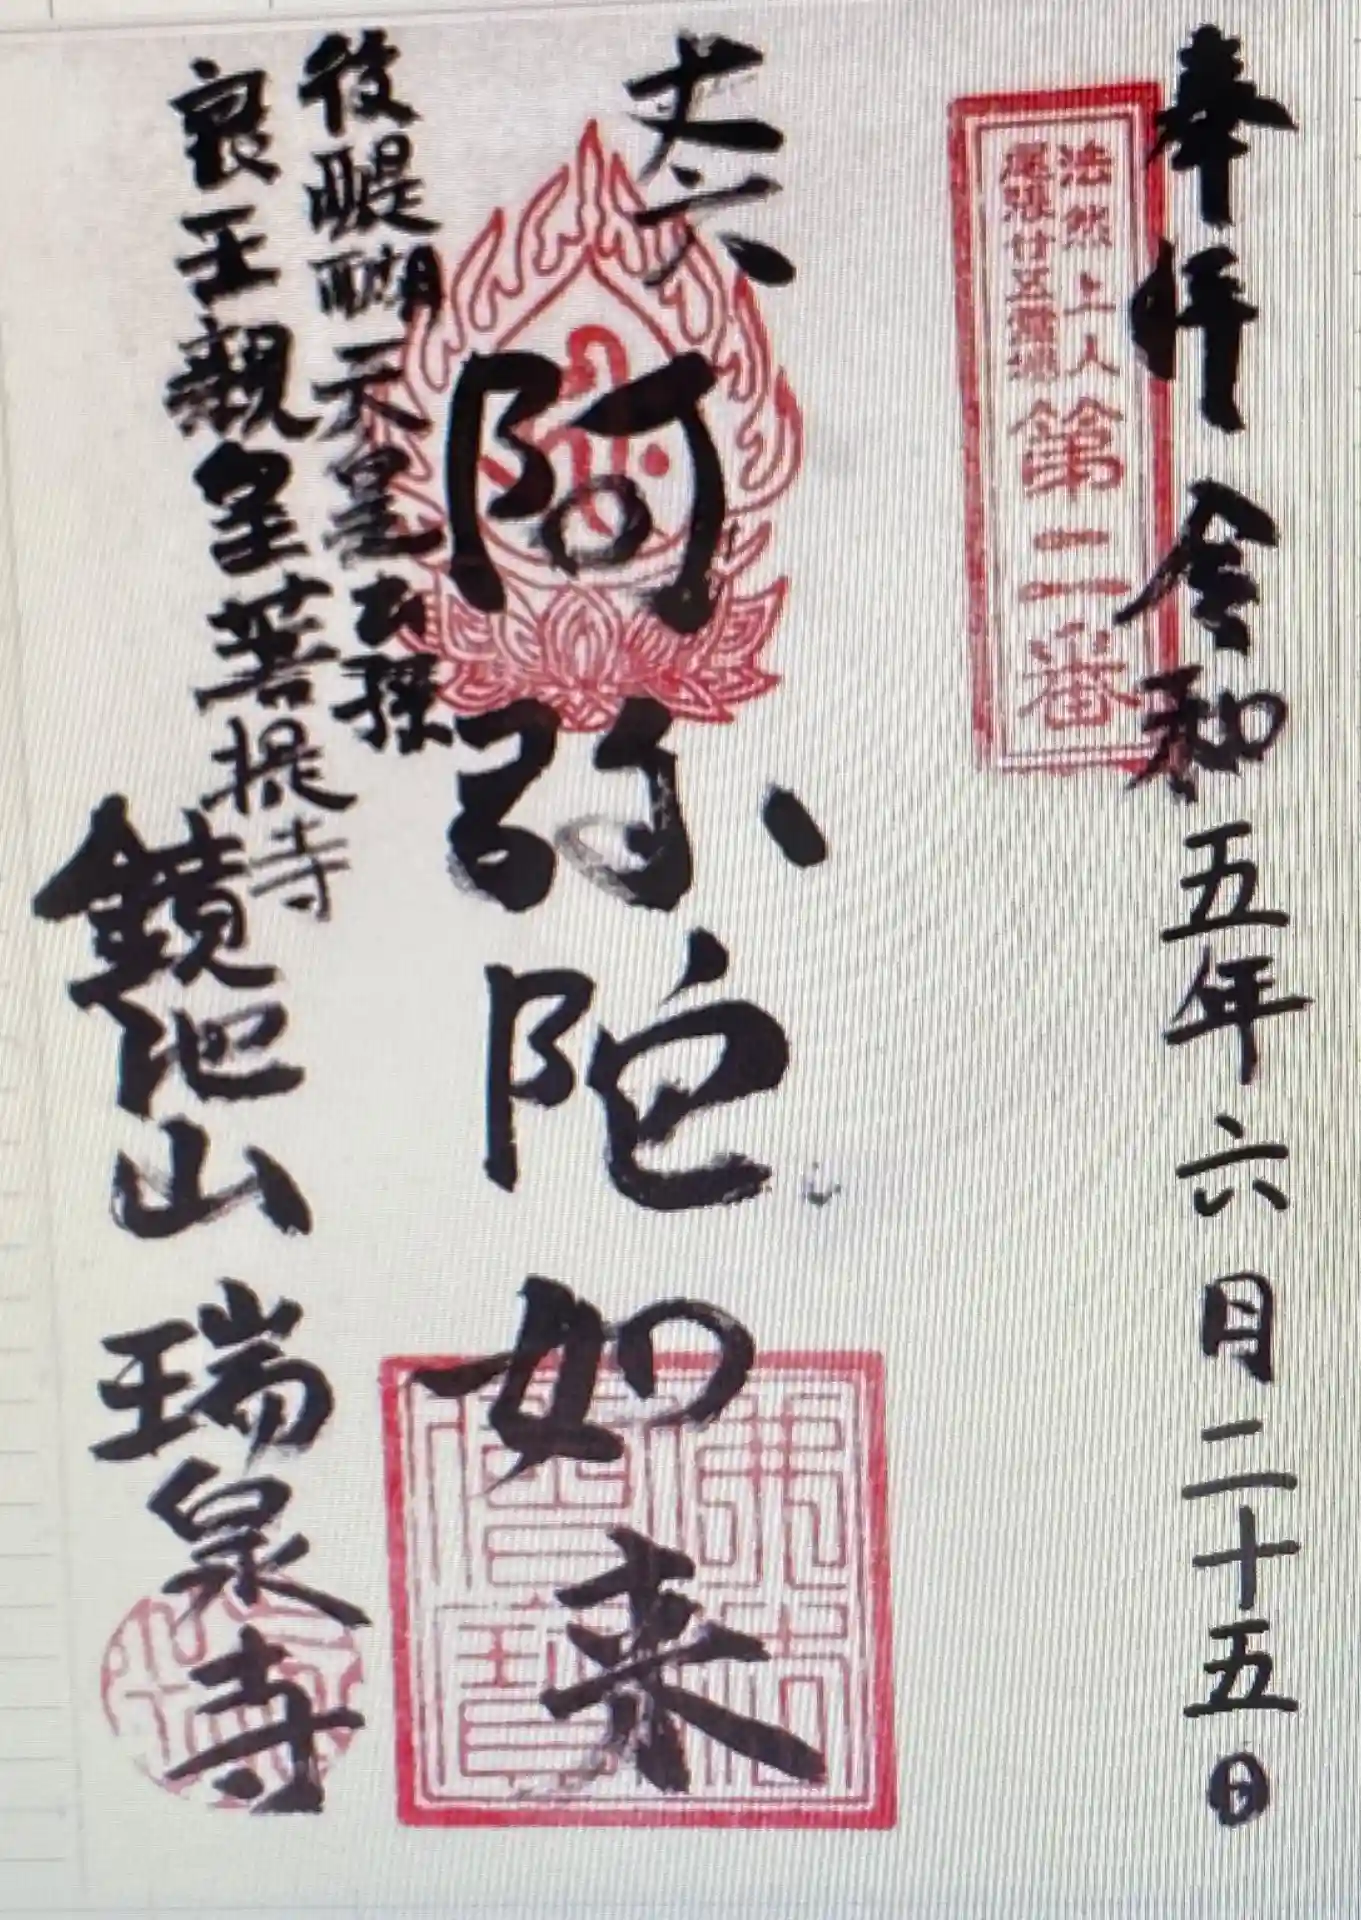 奉拝 令和五年六月二十五日
法然上人
尾張廿五霊場
第二番
丈六
阿弥陀如来
後醍醐天皇玄孫
良王親王菩提寺
鏡池山 瑞泉寺
佛法僧寶